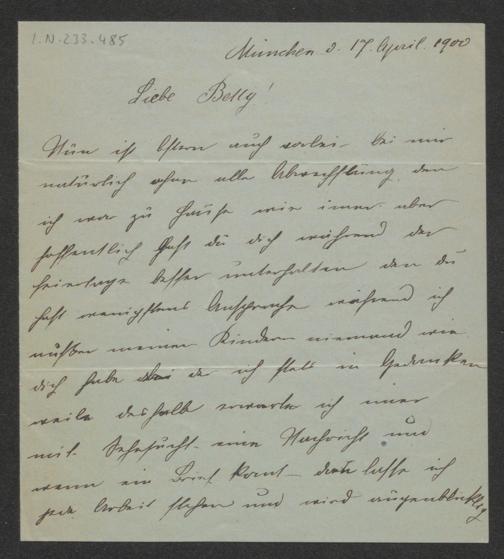 I.N.233.485
München d. 17. April. 1900
Liebe Betty!
Nun ist Ostern auch vorbei bei mir
natürlich ohne alle Abwechslung, den
ich war zu Hause wie imer aber
hoffentlich hast du dich während der
feiertage besser unterhalten den du
hast wenigstens Ansprache während ich
außer meinen Kindern niemand wie
dich habe da ich stets in Gedanken
weile deshalb erwarte ich imer
mit Sehnsucht eine Nachricht und
wenn ein Brief komt dan lasse ich
jede Arbeit stehen und wird augenblicklig